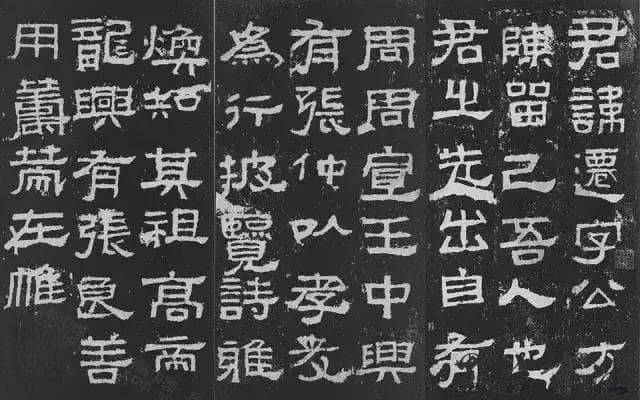 君諱遷字公方
陳留己吾人也
君之先出自有
周周宣王中興
有張仲以孝友
為行披覽詩雅
煥知其祖高帝
龍興有張良善
用籌策在帷